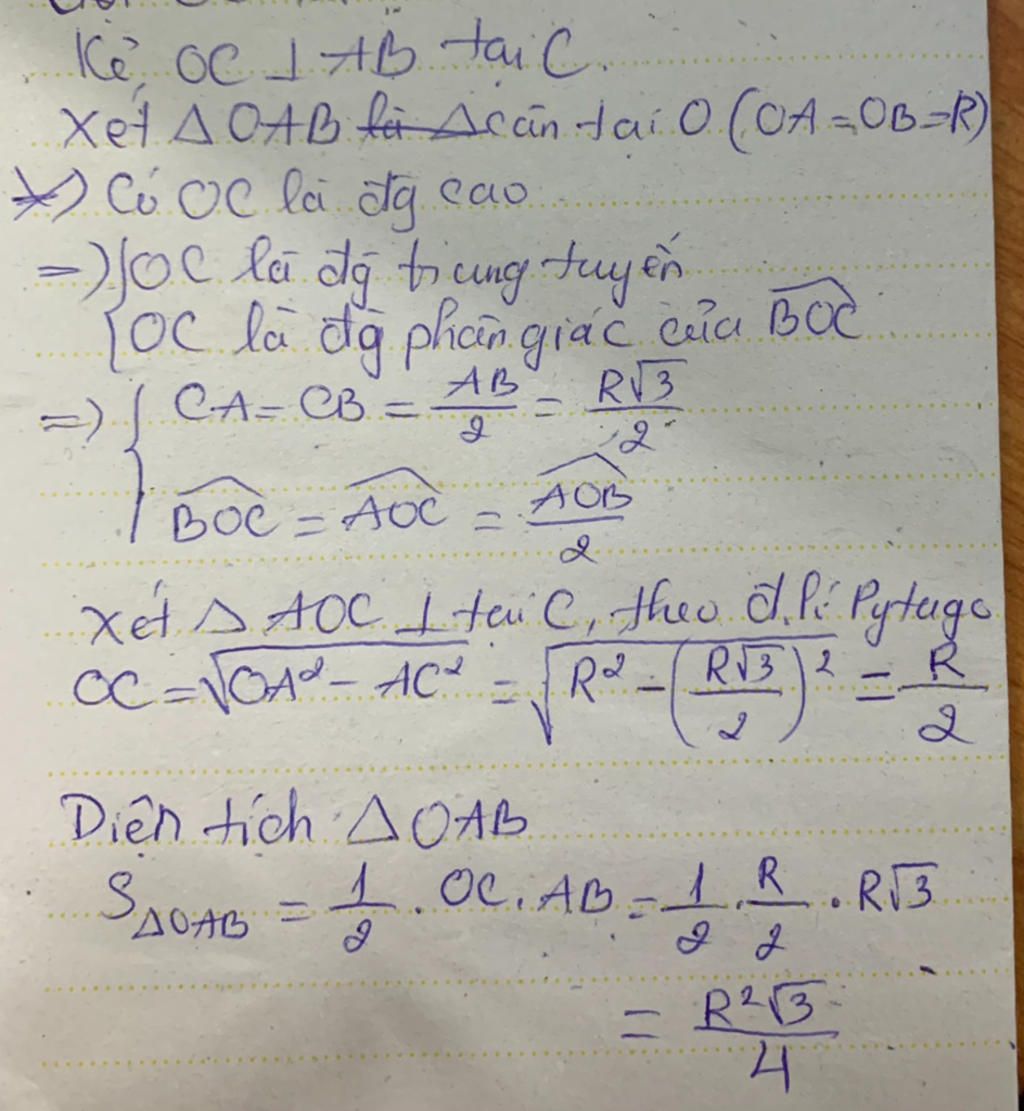 Kẻ OC ⊥ AB tại C.
Xét △OAB là △cân tại O (OA=OB=R)
*) Có OC là đg cao
=> { OC là đg trung tuyến
{ OC là đg phân giác của \widehat{BOC}
=> { CA = CB = \frac{AB}{2} = \frac{R√3}{2}
\widehat{BOC} = \widehat{AOC} = \frac{\widehat{AOB}}{2}
Xét △AOC ⊥ tại C, theo đ.lí Pytago
OC = \sqrt{OA² - AC²} = \sqrt{R² - (\frac{R√3}{2})²} = \frac{R}{2}
Diện tích △OAB
S_{△OAB} = \frac{1}{2} . OC . AB = \frac{1}{2} . \frac{R}{2} . R√3
= \frac{R²√3}{4}